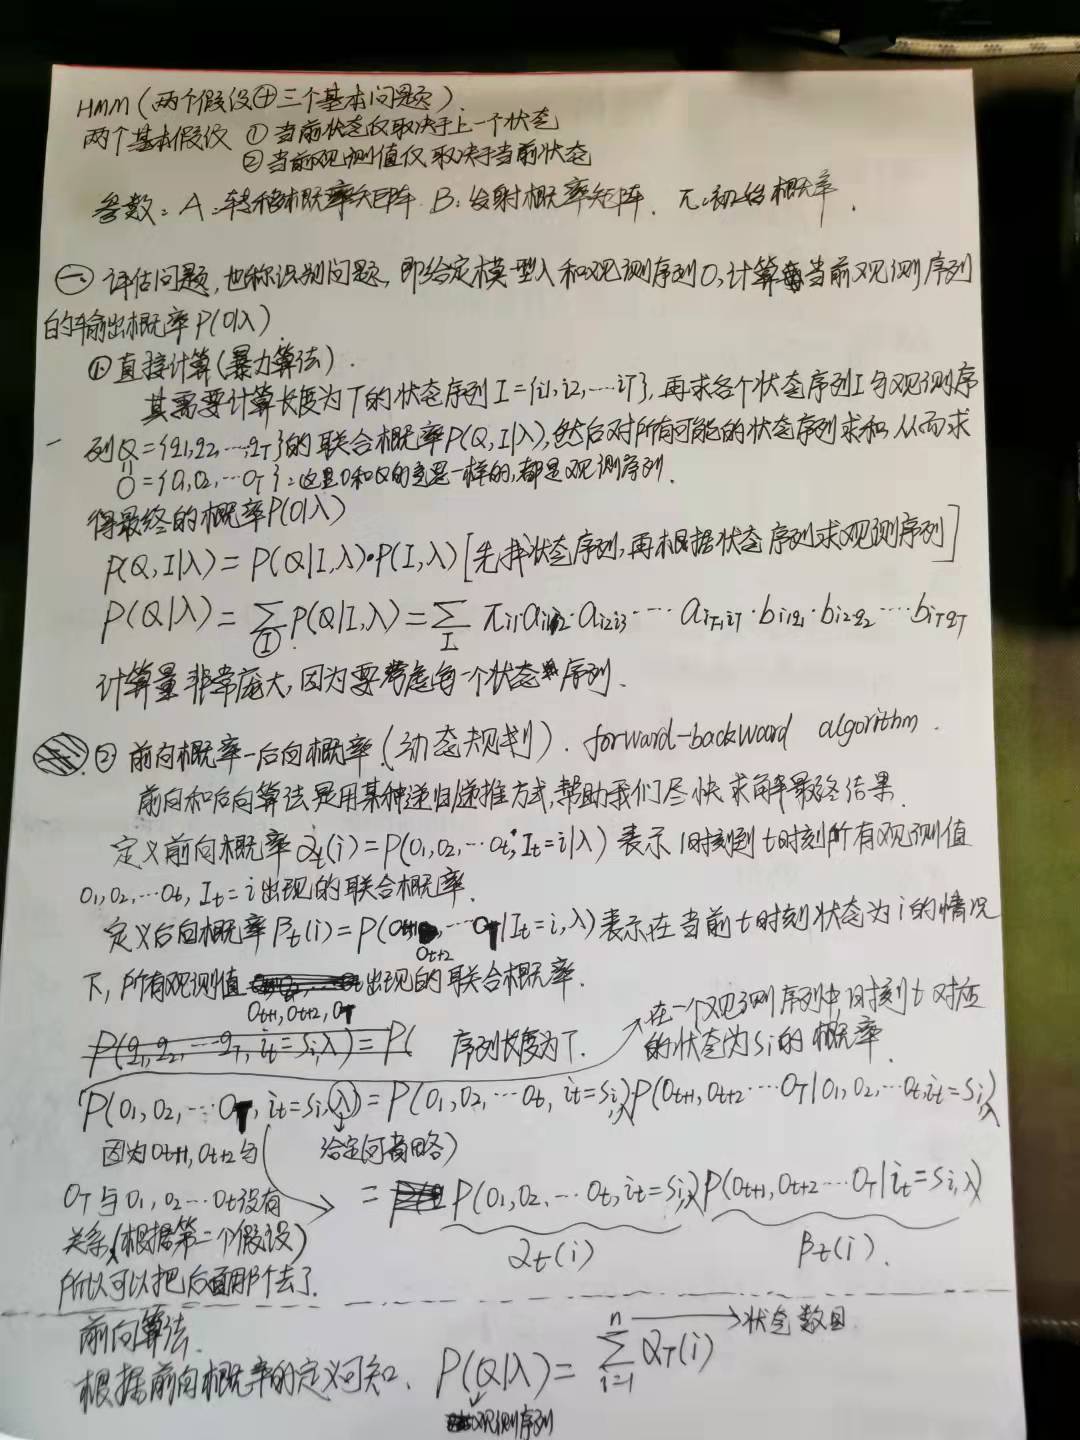 HMM(两个假设⊕三个基本问题).
两个基本假设 ①当前状态仅取决于上一个状态
②当前观测值仅取决于当前状态
参数: A:转移概率矩阵. B:发射概率矩阵. π:初始概率.
㊀ 评估问题,也称识别问题,即给定模型λ和观测序列O,计算当前观测序列
的输出概率P(O|λ)
①直接计算(暴力算法).
其需要计算长度为T的状态序列I={i1,i2,…iT},再求各个状态序列I与观测序
列Q={q1,q2,…,qT}的联合概率P(Q,I|λ),然后对所有可能的状态序列求和,从而求
O={O1,O2,…OT}:这里O和Q的意思一样的,都是观测序列.
得最终的概率P(O|λ)
P(Q,I|λ)=P(Q|I,λ)·P(I,λ)[先求状态序列,再根据状态序列求观测序列]
P(Q|λ)=∑I P(Q|I,λ)=∑I πi1ai1i2·ai2i3·…·aiT-1iT·bi1q1·bi2q2·…biTqT
计算量非常庞大,因为要考虑每一个状态序列.
②前向概率-后向概率.(动态规划). forward-backward algorithm.
前向和后向算法是用某种递归递推方式,帮助我们尽快求解最终结果.
定义前向概率αt(i)=P(O1,O2,…Ot,It=i|λ)表示1时刻到t时刻所有观测值
O1,O2,…Ot,It=i出现的联合概率.
定义后向概率βt(i)=P(Ot+1 …OT|It=i,λ)表示在当前t时刻状态为i的情况
Ot+2
下,所有观测值 出现的联合概率.
Ot+1,Ot+2,OT
在一个观测序列中,时刻t对应
P(q1,q2,…qT,it=si,λ)=P( 序列长度为T. 的状态为si的概率.
P(O1,O2,…OT,it=si,λ)=P(O1,O2,…Ot,it=si,λ)P(Ot+1,Ot+2…OT|O1,O2,…Ot,it=si,λ)
因为Ot+1,Ot+2与( 给定何者略)
OT与O1,O2…Ot没有 =P(O1,O2,…Ot,it=si,λ)P(Ot+1,Ot+2…OT|it=si,λ)
关系,(根据第二个假设) αt(i) βt(i).
所以可以把后面那个去了.
前向算法.
n → 状态数目
根据前向概率的定义可知、P(Q|λ)=∑i=1 αT(i)
观测序列